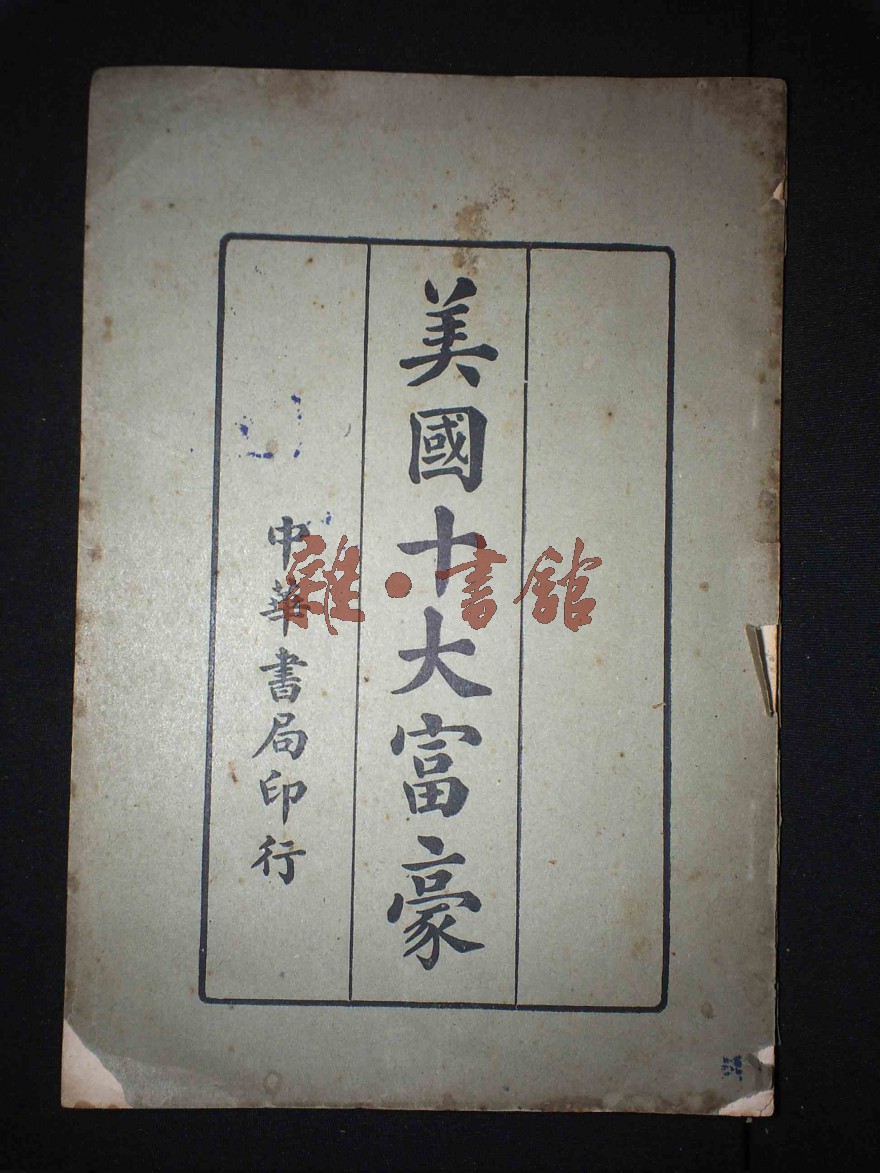 美國十大富豪
中華書局印行
雜·書館